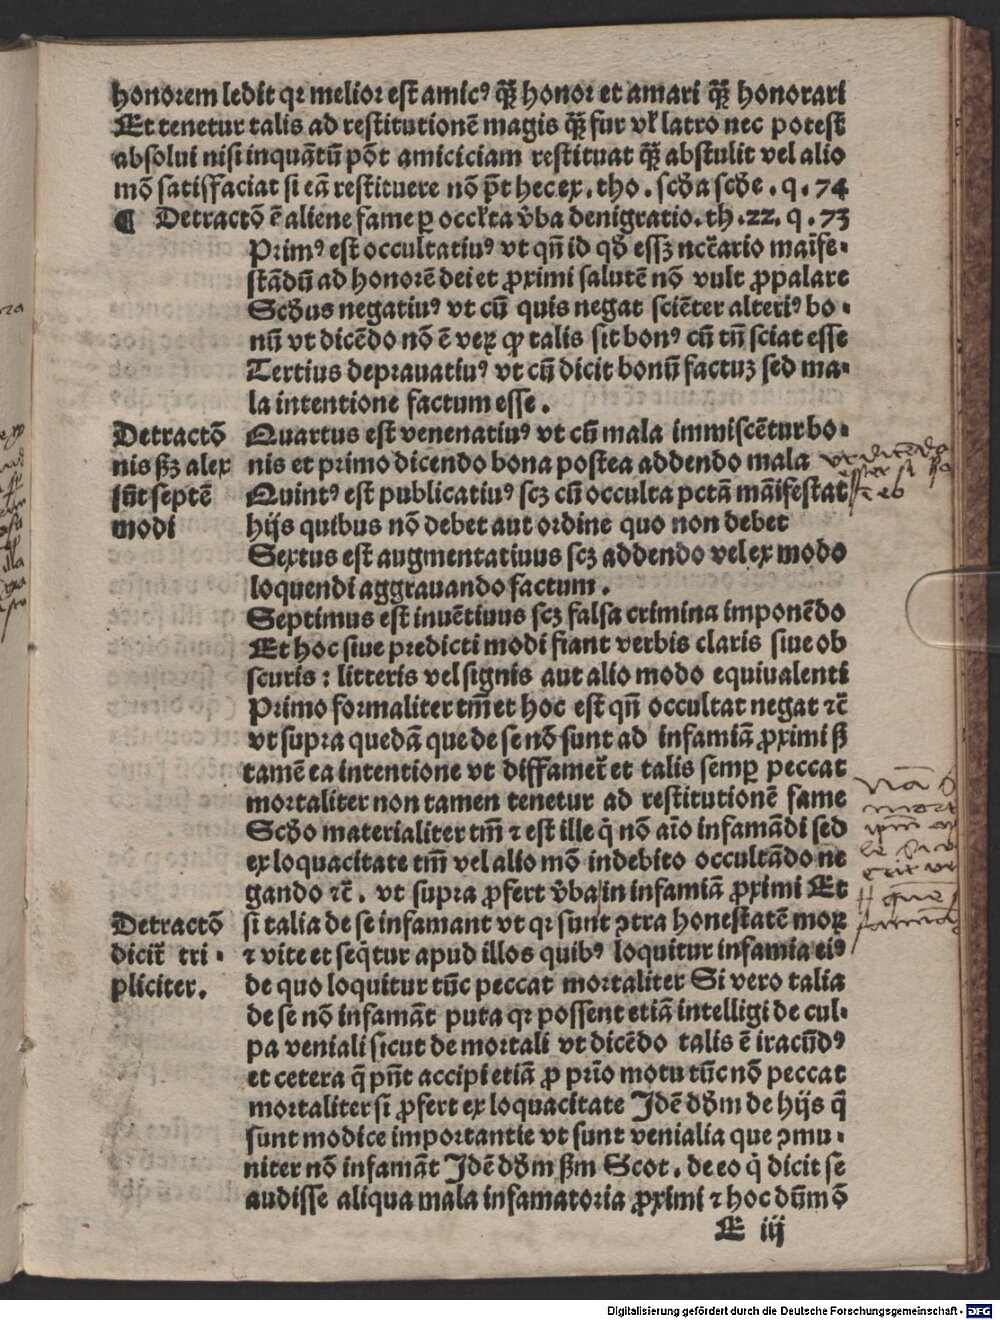 honorem ledit qꝛ melior est amicꝰ qꝫ̃ honor et amari qꝫ̃ honorari
Et tenetur talis ad restitutionē magis qꝫ̃ fur vl' latro nec potest
absolui nisi inquātū pōt amiciciam restituat qꝫ̃ abstulit vel alio
mō satisfaciat si eā restituere nō pt̄ hec ex . tho . scd'a scd'e . q . 74
¶ Detractō ē aliene fame ꝑ occl'ta v̄ba denigratio . th . 22. q . 73
Primꝰ est occultatiuꝰ vt qn̄ id qd' essꝫ nccārio maīfe-
stādū ad honorē dei et ꝓximi salutē nō vult ꝓpalare
Scd'us negatiuꝰ vt cū quis negat sciēter alteriꝰ bo-
nū vt dicēdo nō ē veꝝ ꝙ talis sit bonꝰ cū tn̄ sciat esse
Tertius deprauatiuꝰ vt cū dicit bonū factuꝫ sed ma-
la intentione factum esse .
Detractō
nis ẞꝫ alex
sūt septē
modi
Quartus est venenatiuꝰ vt cū mala immiscētur bo-
nis et primo dicendo bona postea addendo mala
Quintꝰ est publicatiuꝰ scꝫ cū occulta pctā māifestat
hijs quibus nō debet aut ordine quo non debet
Sextus est augmentatiuus scꝫ addendo vel ex modo
loquendi aggrauando factum .
Septimus est inuētiuus scꝫ falsa crimina imponēdo
Et hoc siue predicti modi fiant verbis claris siue ob
scuris : litteris vel signis aut alio modo equiualenti
Primo formaliter tm̄ et hoc est qn̄ occultat negat ⁊c̄
vt supra quedā que de se nō sunt ad infamiā ꝓximi ẞ
tamē ea intentione vt diffamer̄ et talis semꝑ peccat
mortaliter non tamen tenetur ad restitutionē fame
Scd'o materialiter tm̄ ⁊ est ille q̇ nō aīo infamādi sed
ex loquacitate tm̄ vel alio mō indebito occultādo ne
gando ⁊c̄ . vt supra ꝓfert v̄ba in infamiā ꝓximi Et
Detractō
dicit̄ tri-
pliciter.
si talia de se infamant vt qꝛ sunt ꝯtra honestatē moꝝ
⁊ vite et seq̄tur apud illos quibꝰ loquitur infamia eiꝰ
de quo loquitur tūc peccat mortaliter Si vero talia
de se nō infamāt puta qꝛ possent etiā intelligi de cul-
pa veniali sicut de mortali vt dicēdo talis ē iracūdꝰ
et cetera q̄ pn̄t accipi etiā ꝓ prīo motu tūc nō peccat
mortaliter si ꝓfert ex loquacitate Idē dd'm de hijs q̄
sunt modice importantie vt sunt venialia que ꝯmu-
niter nō infamāt Idē dd'm ẞm Scot . de eo q̇ dicit se
audisse aliqua mala infamatoria ꝓximi ⁊ hoc dūmō
E iij
Digitalisierung gefördert durch die Deutsche Forschungsgemeinschaft - DFG